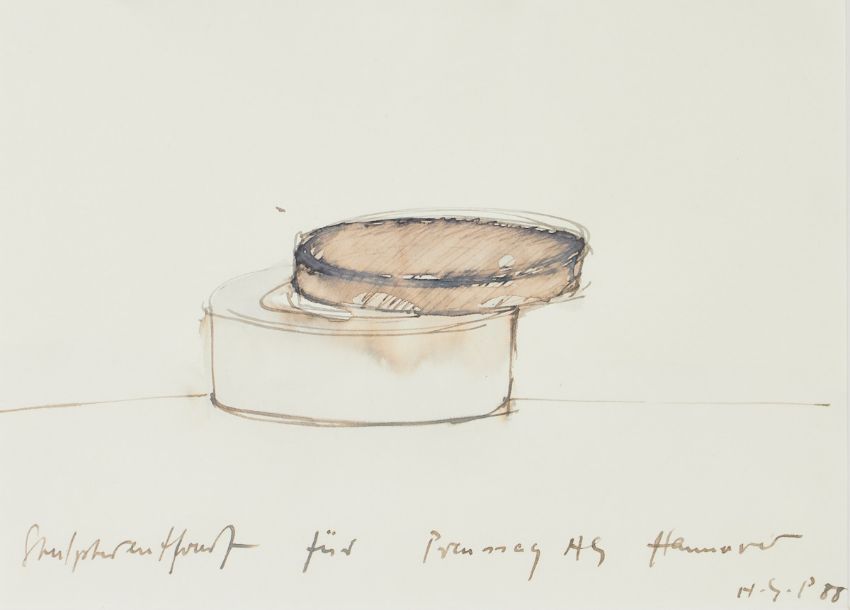 Skulpturentwurf für Preussag AG Hannover
H.G.P 88